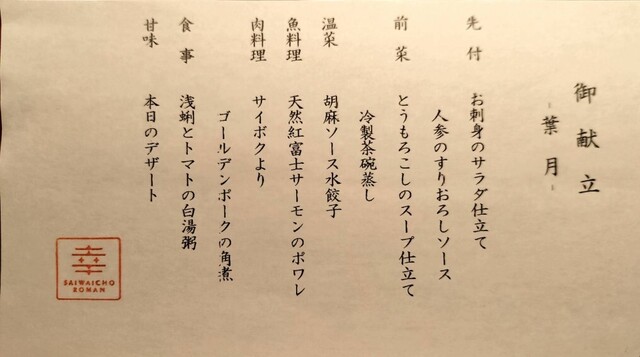 御献立
-葉月-
先付 お刺身のサラダ仕立て
人参のすりおろしソース
前菜 とうもろこしのスープ仕立て
冷製茶碗蒸し
温菜 胡麻ソース水餃子
魚料理 天然紅富士サーモンのポワレ
肉料理 サイボクより
ゴールデンポークの角煮
食事 浅蜊とトマトの白湯粥
甘味 本日のデザート
幸
SAIWAICHO
ROMAN